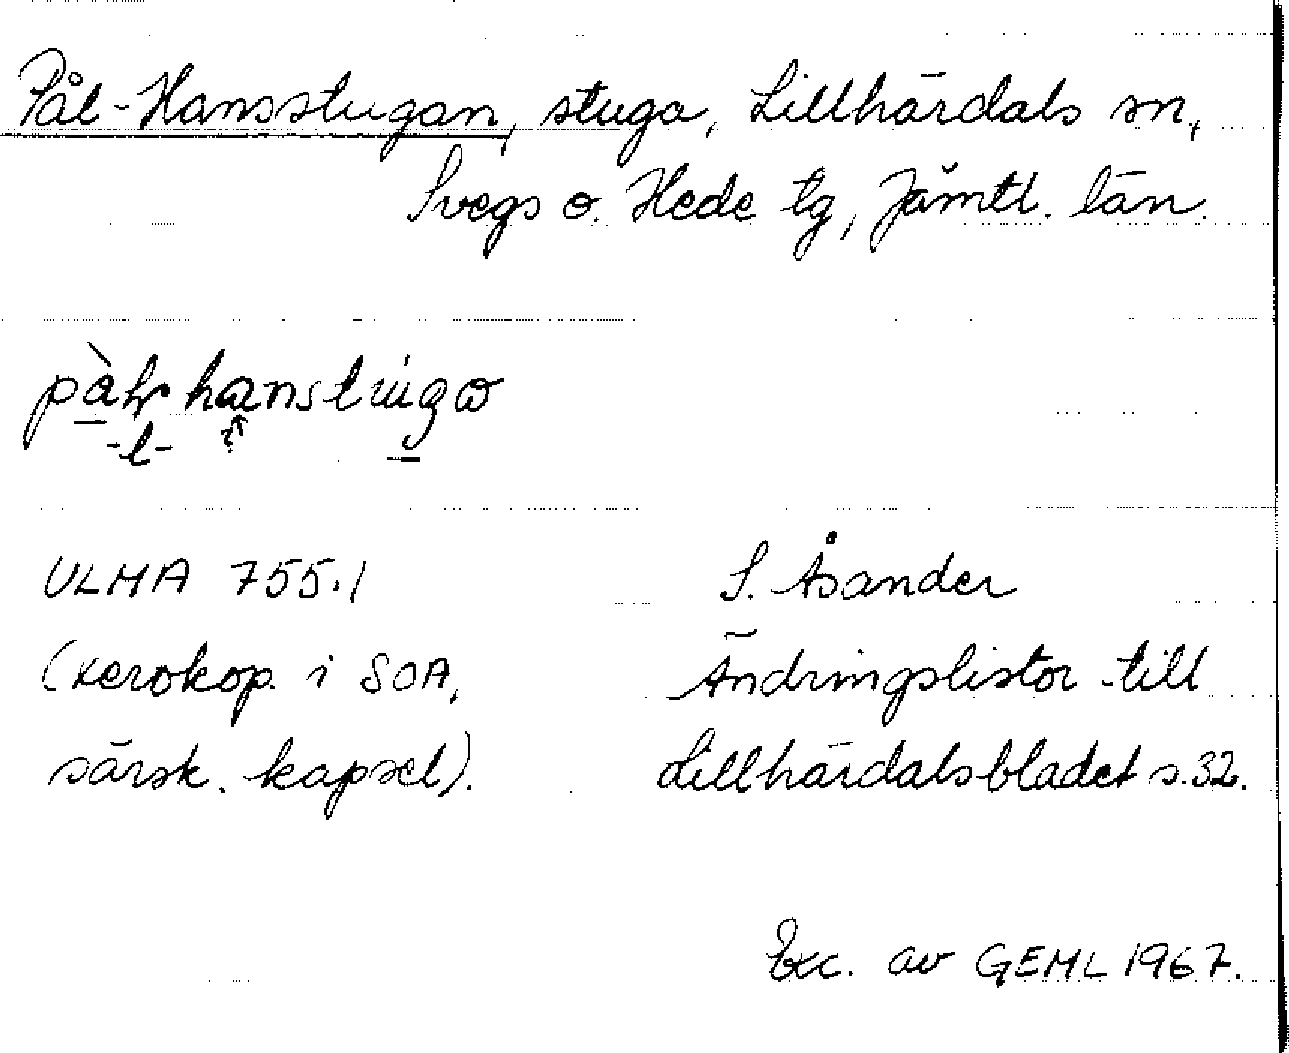 Pål-Hansstugan, stuga, Lillhärdals sn,
Svegs o. Hede tg, Jämtl. län.
-l-
ULMA 755:1
S. Åsander
(Xerokop. i SOA,
Ändringslistor till
särsk. kapsel).
Lillhärdalsbladet s.32.
Exc. av GEML 1967.